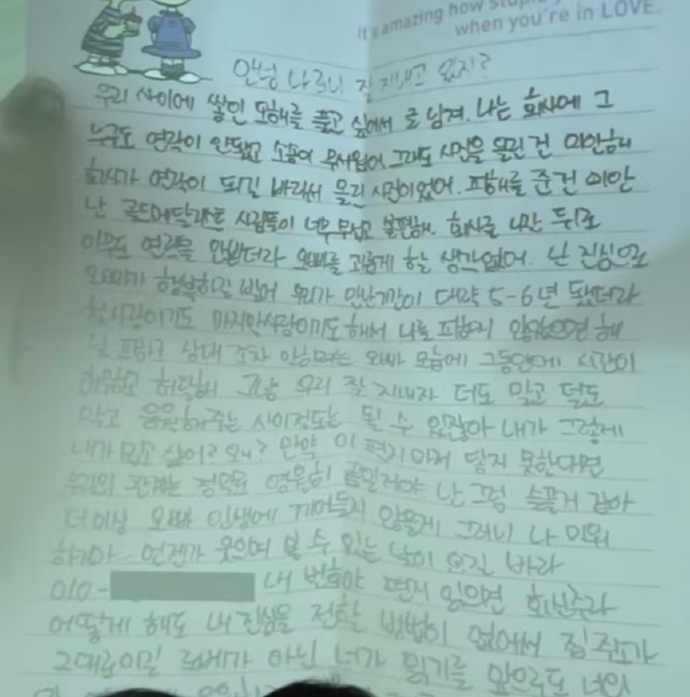 It's amazing how
when you're in LOVE.
안녕 나르니 잘 지내고 있지?
우리 사이에 쌓인 오해를 풀고 싶어서 로 남겨. 나는 회사에 그
누구도 연락이 안됐고 소름이 무서웠어. 그래도 시간을 끌린 건 미안해
회사가 연락이 되길 바래서 올린 사진이었어. 피해를 준건 미안
난 골드메달리스트 사람들이 너무 무섭고 불편해. 회사를 나간 뒤로
아무도 연락을 안받더라 오빠를 괴롭게 할 생각없어. 난 진심으로
오빠가 행복하길 빌어 우리가 만난기간이 대략 5-6년 됐더라
첫사랑이기도 마지막사랑이기도 해서 나를 피하지 않았으면 해
날 피하고 상대 조차 안하려는 오빠 모습에 그동안에 시간이
허무하고 허탈해 그냥 우리 잘 지내자 더도 말고 덜도
말고 응원해주는 사이정도는 될 수 있잖아 내가 그렇게
내가 밉고 싫어? 왜? 만약 이 편지마저 닿지 못한다면
우리의 관계는 정말로 영원히 끝일거야 난 그럼 슬플거 같아
더이상 오빠 인생에 끼어들지 않을게 그러니 나 미워
하지마 언젠가 웃으며 볼 수 있는 날이 오길 바라
010- 내 번호야 편지 읽으면 회신주라
어떻게 해도 내 진심을 전할 방법이 없어서 집 주소가
그대로이길 로베가 아닌 너가 읽기를 앞으로도 너의